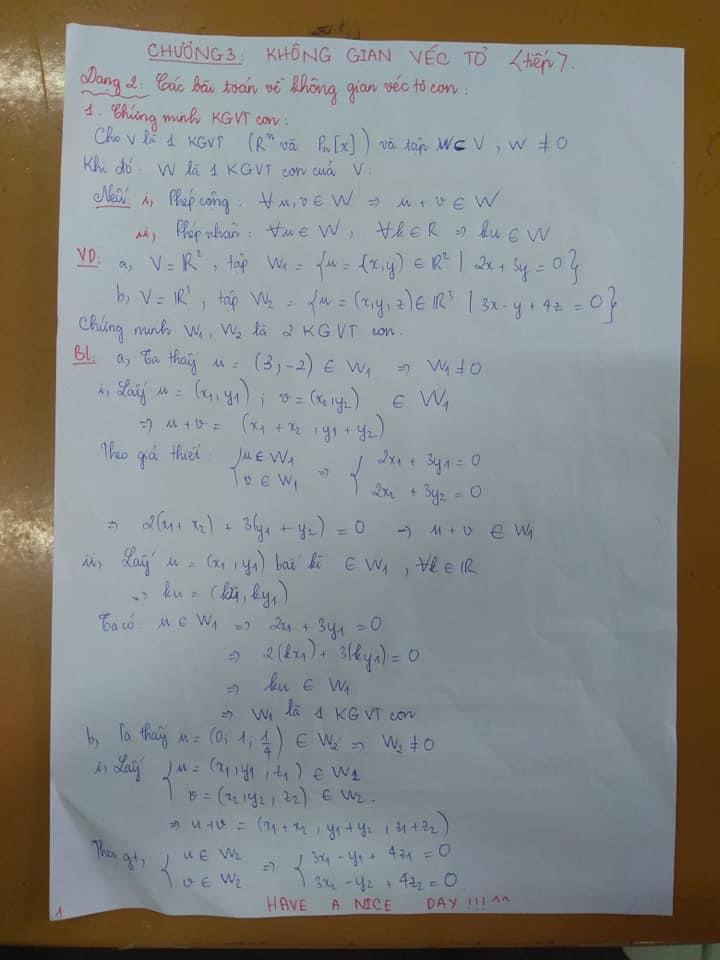 CHƯƠNG 3: KHÔNG GIAN VÉC TƠ <tiếp>.
Dạng 2: Các bài toán về không gian véc tơ con:
1. Chứng minh KGVT con:
Cho V là 1 KGVT (Rⁿ và Pn[x]) và tập W⊂V, W ≠0
Khi đó: W là 1 KGVT con của V:
Nếu: i, Phép cộng: ∀u,v ∈ W ⇒ u + v ∈ W
ii, Phép nhân: ∀u ∈ W, ∀k ∈ R ⇒ ku ∈ W
VD: a, V = R², tập W₁ = {u = (x,y) ∈ R² | 2x + 3y = 0}
b, V = R³, tập W₂ = {u = (x,y,z) ∈ R³ | 3x - y + 4z = 0}
Chứng minh W₁, W₂ là 2 KGVT con.
BL: a, Ta thấy u = (3,-2) ∈ W₁ ⇒ W₁ ≠ 0
i, Lấy u = (x₁,y₁); v = (x₂,y₂) ∈ W₁
⇒ u + v = (x₁ + x₂, y₁ + y₂)
Theo giả thiết: { u ∈ W₁ ⇒ { 2x₁ + 3y₁ = 0
v ∈ W₁ 2x₂ + 3y₂ = 0
⇒ 2(x₁ + x₂) + 3(y₁ + y₂) = 0 ⇒ u + v ∈ W₁
ii, Lấy u = (x₁,y₁) bất kì ∈ W₁, ∀k ∈ R
⇒ ku = (kx₁, ky₁)
Ta có: u ∈ W₁ ⇒ 2x₁ + 3y₁ = 0
⇒ 2(kx₁) + 3(ky₁) = 0
⇒ ku ∈ W₁
⇒ W₁ là 1 KGVT con
b, Ta thấy u = (0; 1; 1/4) ∈ W₂ ⇒ W₂ ≠ 0
i, Lấy { u = (x₁,y₁,z₁) ∈ W₂
v = (x₂,y₂,z₂) ∈ W₂.
⇒ u+v = (x₁+x₂, y₁+y₂, z₁+z₂)
Theo gt, { u ∈ W₂ ⇒ { 3x₁ - y₁ + 4z₁ = 0
v ∈ W₂ 3x₂ - y₂ + 4z₂ = 0
HAVE A NICE DAY!!! ^^
1